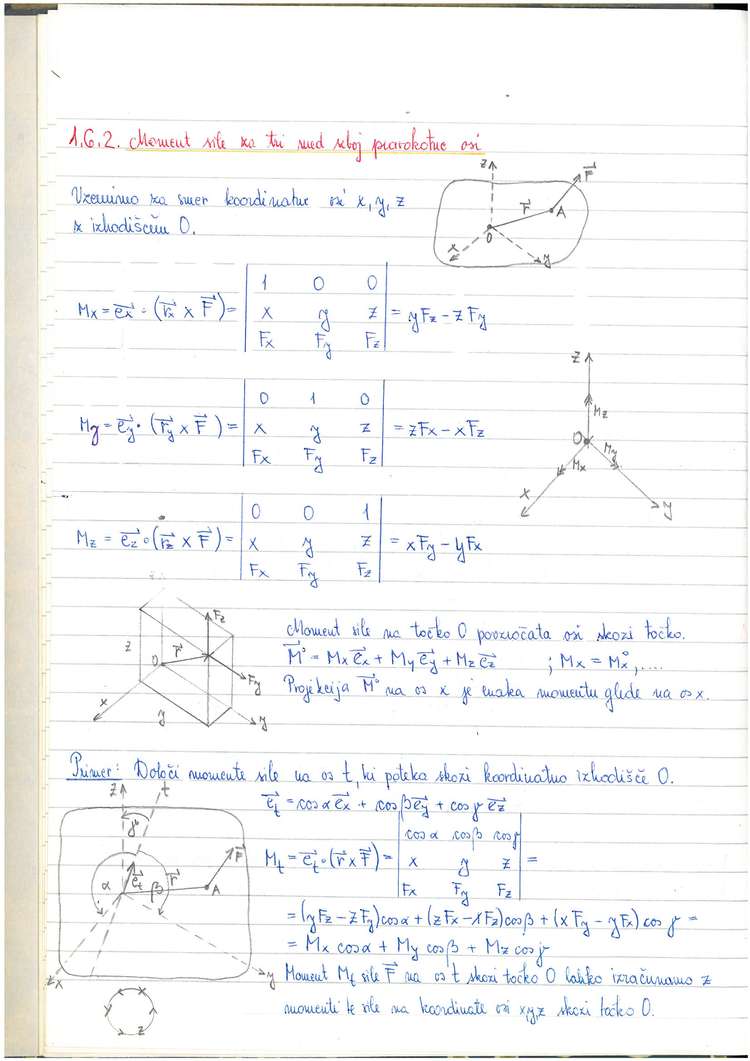 1.6.2. Moment sile za tri med seboj pravokotne osi
Vzemimo za smer koordinatne osi x, y, z
z izhodiščem O.
z F
r A
O
x y
Mx = ex · (rx x F) = | 1 0 0 | = yFz - zFy
| x y z |
| Fx Fy Fz |
My = ey · (ry x F) = | 0 1 0 | = zFx - xFz
| x y z |
| Fx Fy Fz |
z
Mz
O
Mx My
x y
Mz = ez · (rz x F) = | 0 0 1 | = xFy - yFx
| x y z |
| Fx Fy Fz |
Fz
z O r
Fy
x y y
Moment sile na točko O povzročata osi skozi točko.
M° = Mx ex + My ey + Mz ez ; Mx = Mx°, ....
Projekcija M° na os x je enaka momentu glede na os x.
Primer: Določi momente sile na os t, ki poteka skozi koordinatno izhodišče O.
et = cos α ex + cos β ey + cos γ ez
Mt = et · (r x F) = | cos α cos β cos γ | =
| x y z |
| Fx Fy Fz |
= (yFz - zFy) cos α + (zFx - xFz) cos β + (xFy - yFx) cos γ =
= Mx cos α + My cos β + Mz cos γ
Moment Mt sile F na os t skozi točko O lahko izračunamo z
momenti te sile na koordinate osi x,y,z skozi točko O.
z t
γ
F
α et β r A
x y
y x
z